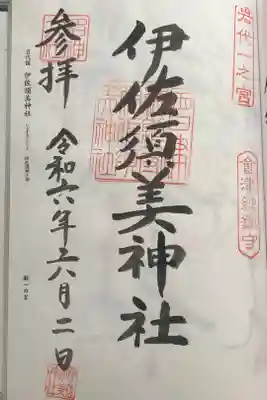 岩代一之宮
會津総鎮守
伊佐須美神社
参拝
令和六年六月二日
伊佐須美神社